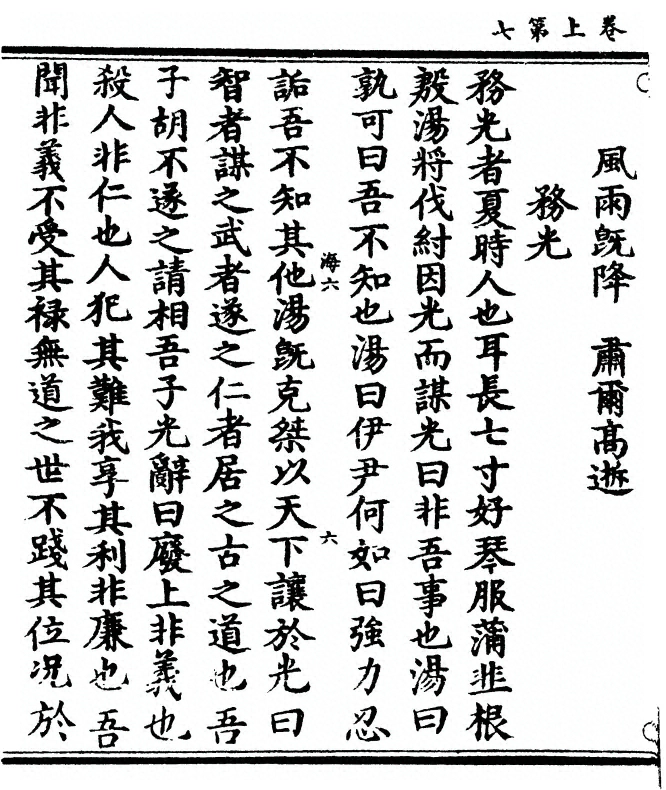 卷上第七
風雨旣降 肅爾高逝
務光
務光者夏時人也耳長七寸好琴服蒲韭根
殷湯將伐紂因光而謀光曰非吾事也湯曰
孰可曰吾不知也湯曰伊尹何如曰強力忍
海六
六
詬吾不知其他湯旣克桀以天下讓於光曰
智者謀之武者遂之仁者居之古之道也吾
子胡不遂之請相吾子光辭曰廢上非義也
殺人非仁也人犯其難我享其利非廉也吾
聞非義不受其祿無道之世不踐其位况於